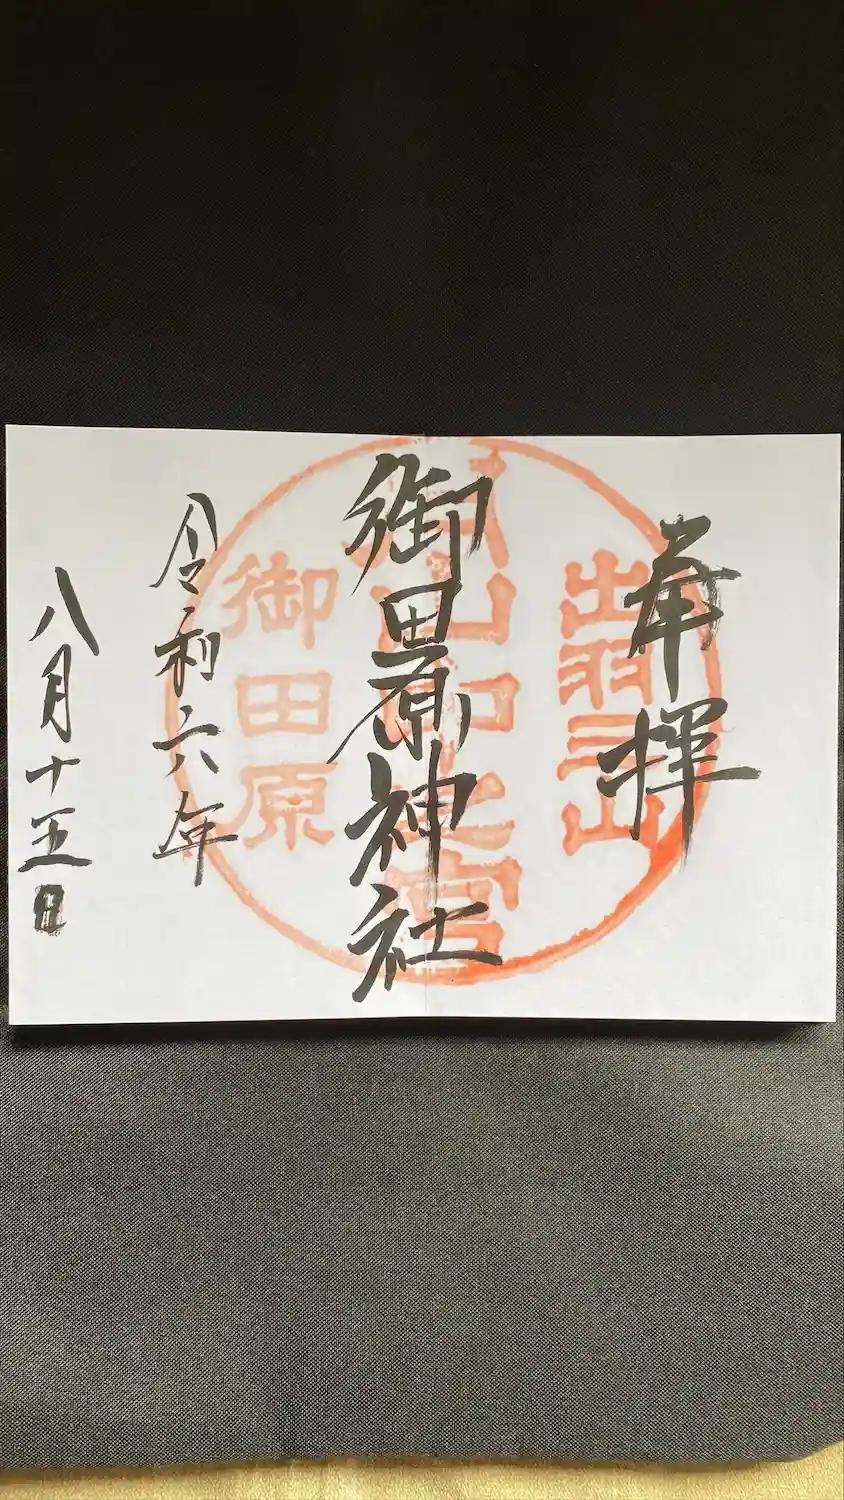 奉拝
出羽三山
月山中之宮
御田原神社
御田原
令和六年
八月十五日